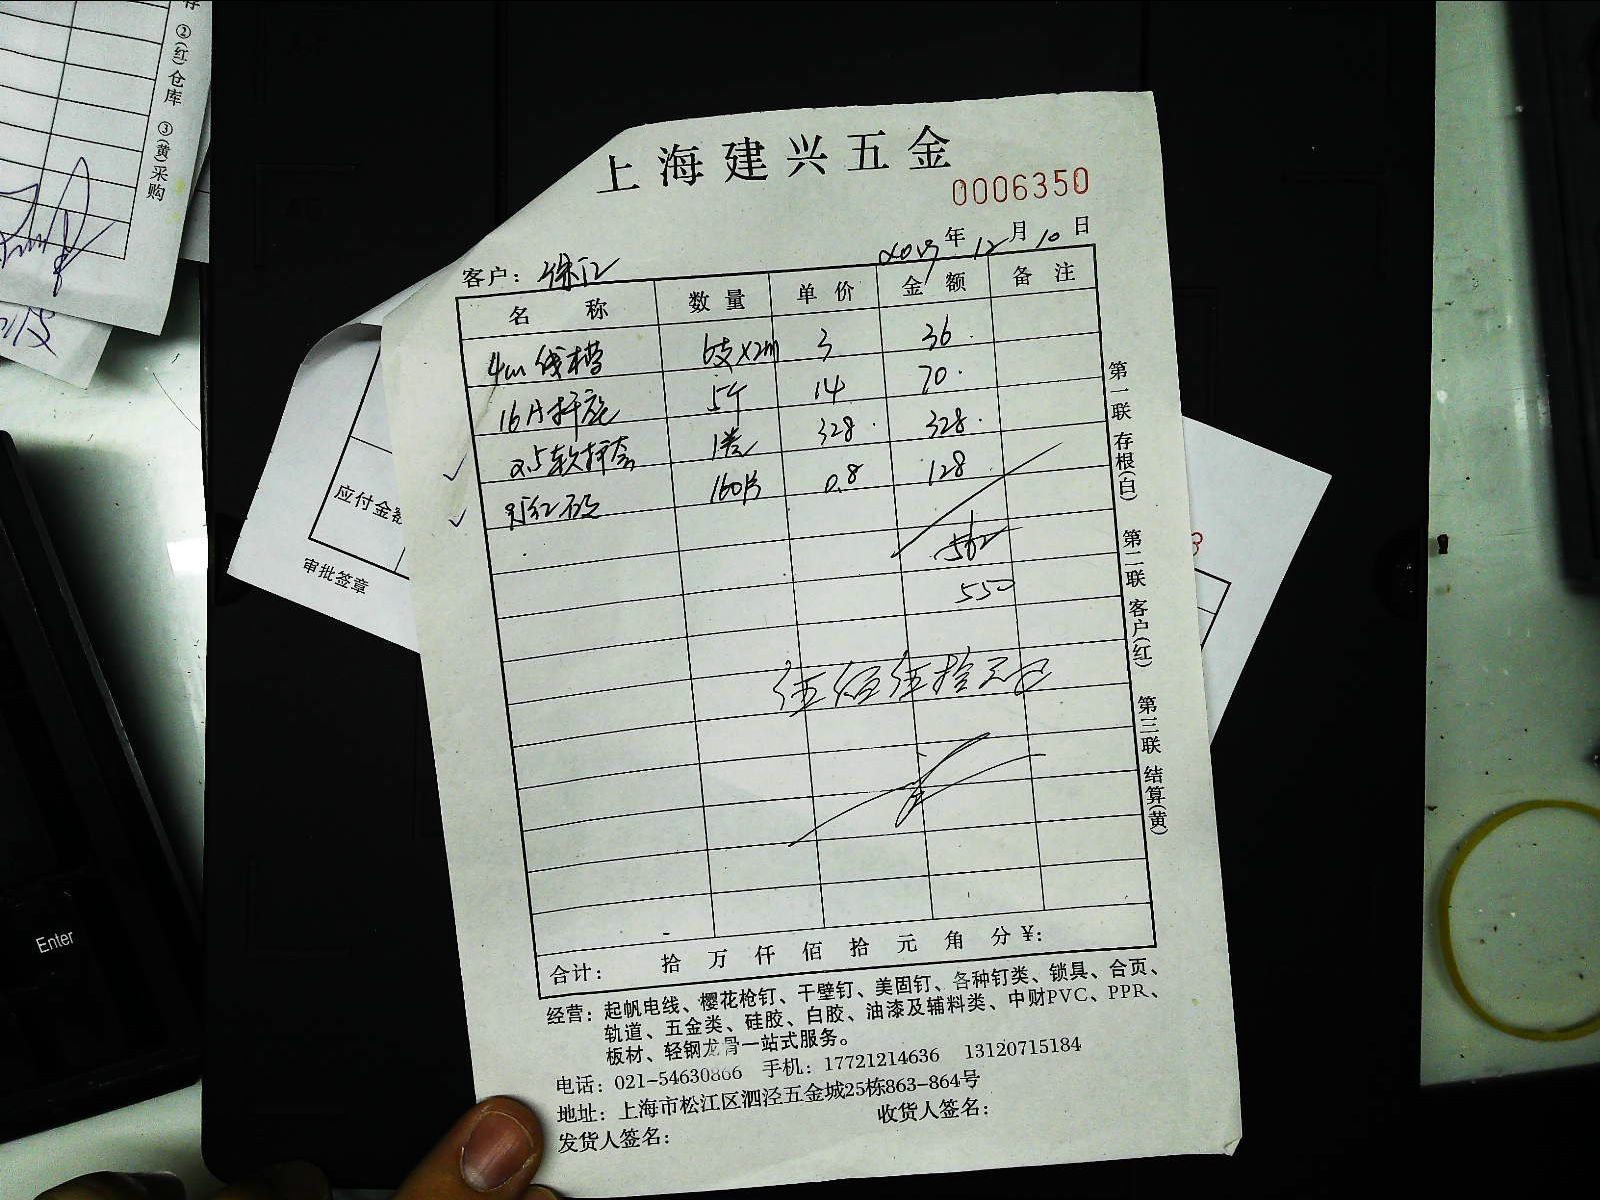 ②(红)仓库 ③(黄)采购
上海建兴五金
0006350
2019年12月10日
客户：徐汇
名 称 数 量 单 价 金 额 备 注
4cm线槽 6支×2m 3 36.
16 5个 14 70.
2.5软 1卷 328. 328.
160片 0.8 128
562
550
伍佰伍拾元正
合计： 拾 万 仟 佰 拾 元 角 分 ¥：
第一联 存根(白) 第二联 客户(红) 第三联 结算(黄)
经营：起帆电线、樱花枪钉、干壁钉、美固钉、各种钉类、锁具、合页、
轨道、五金类、硅胶、白胶、油漆及辅料类、中财PVC、PPR、
板材、轻钢龙骨一站式服务。
电话：021-54630866 手机：17721214636 13120715184
地址：上海市松江区泗泾五金城25栋863-864号
发货人签名： 收货人签名：
应付金额
审批签章
Enter